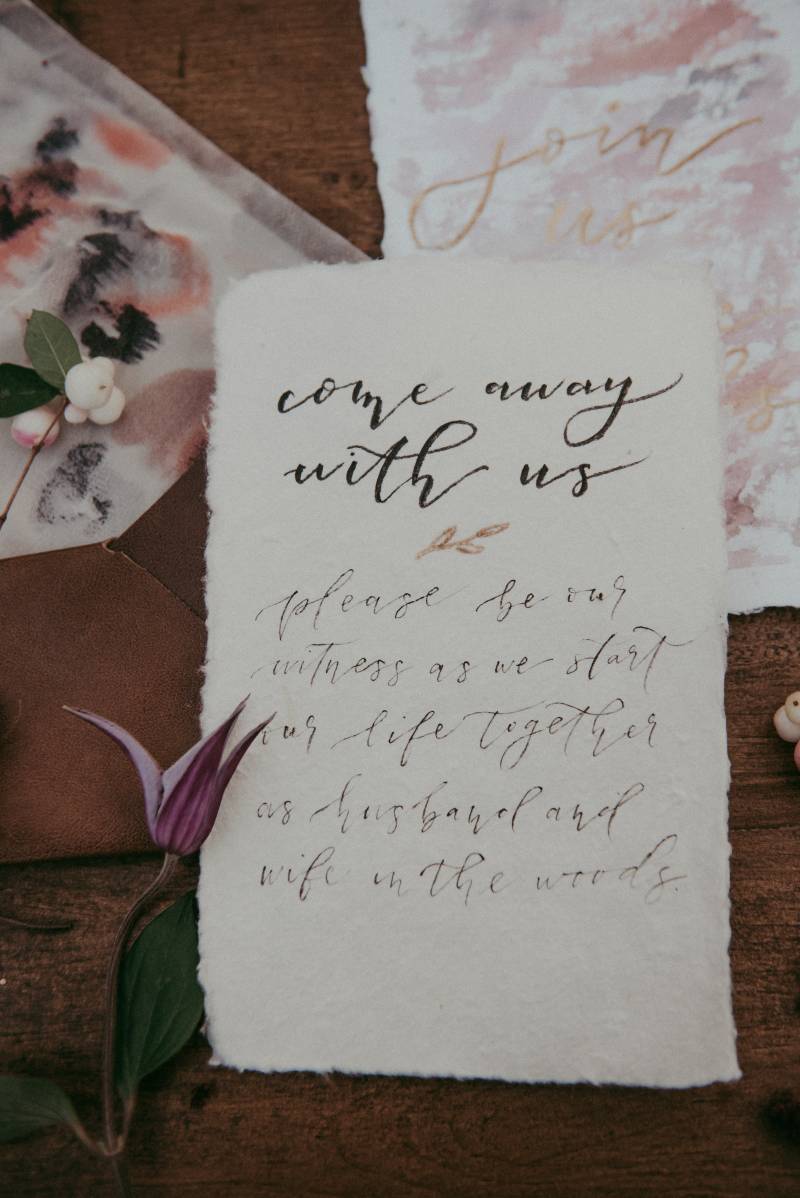 join
us
come away
with us
please be our
witness as we start
our life together
as husband and
wife in the woods.